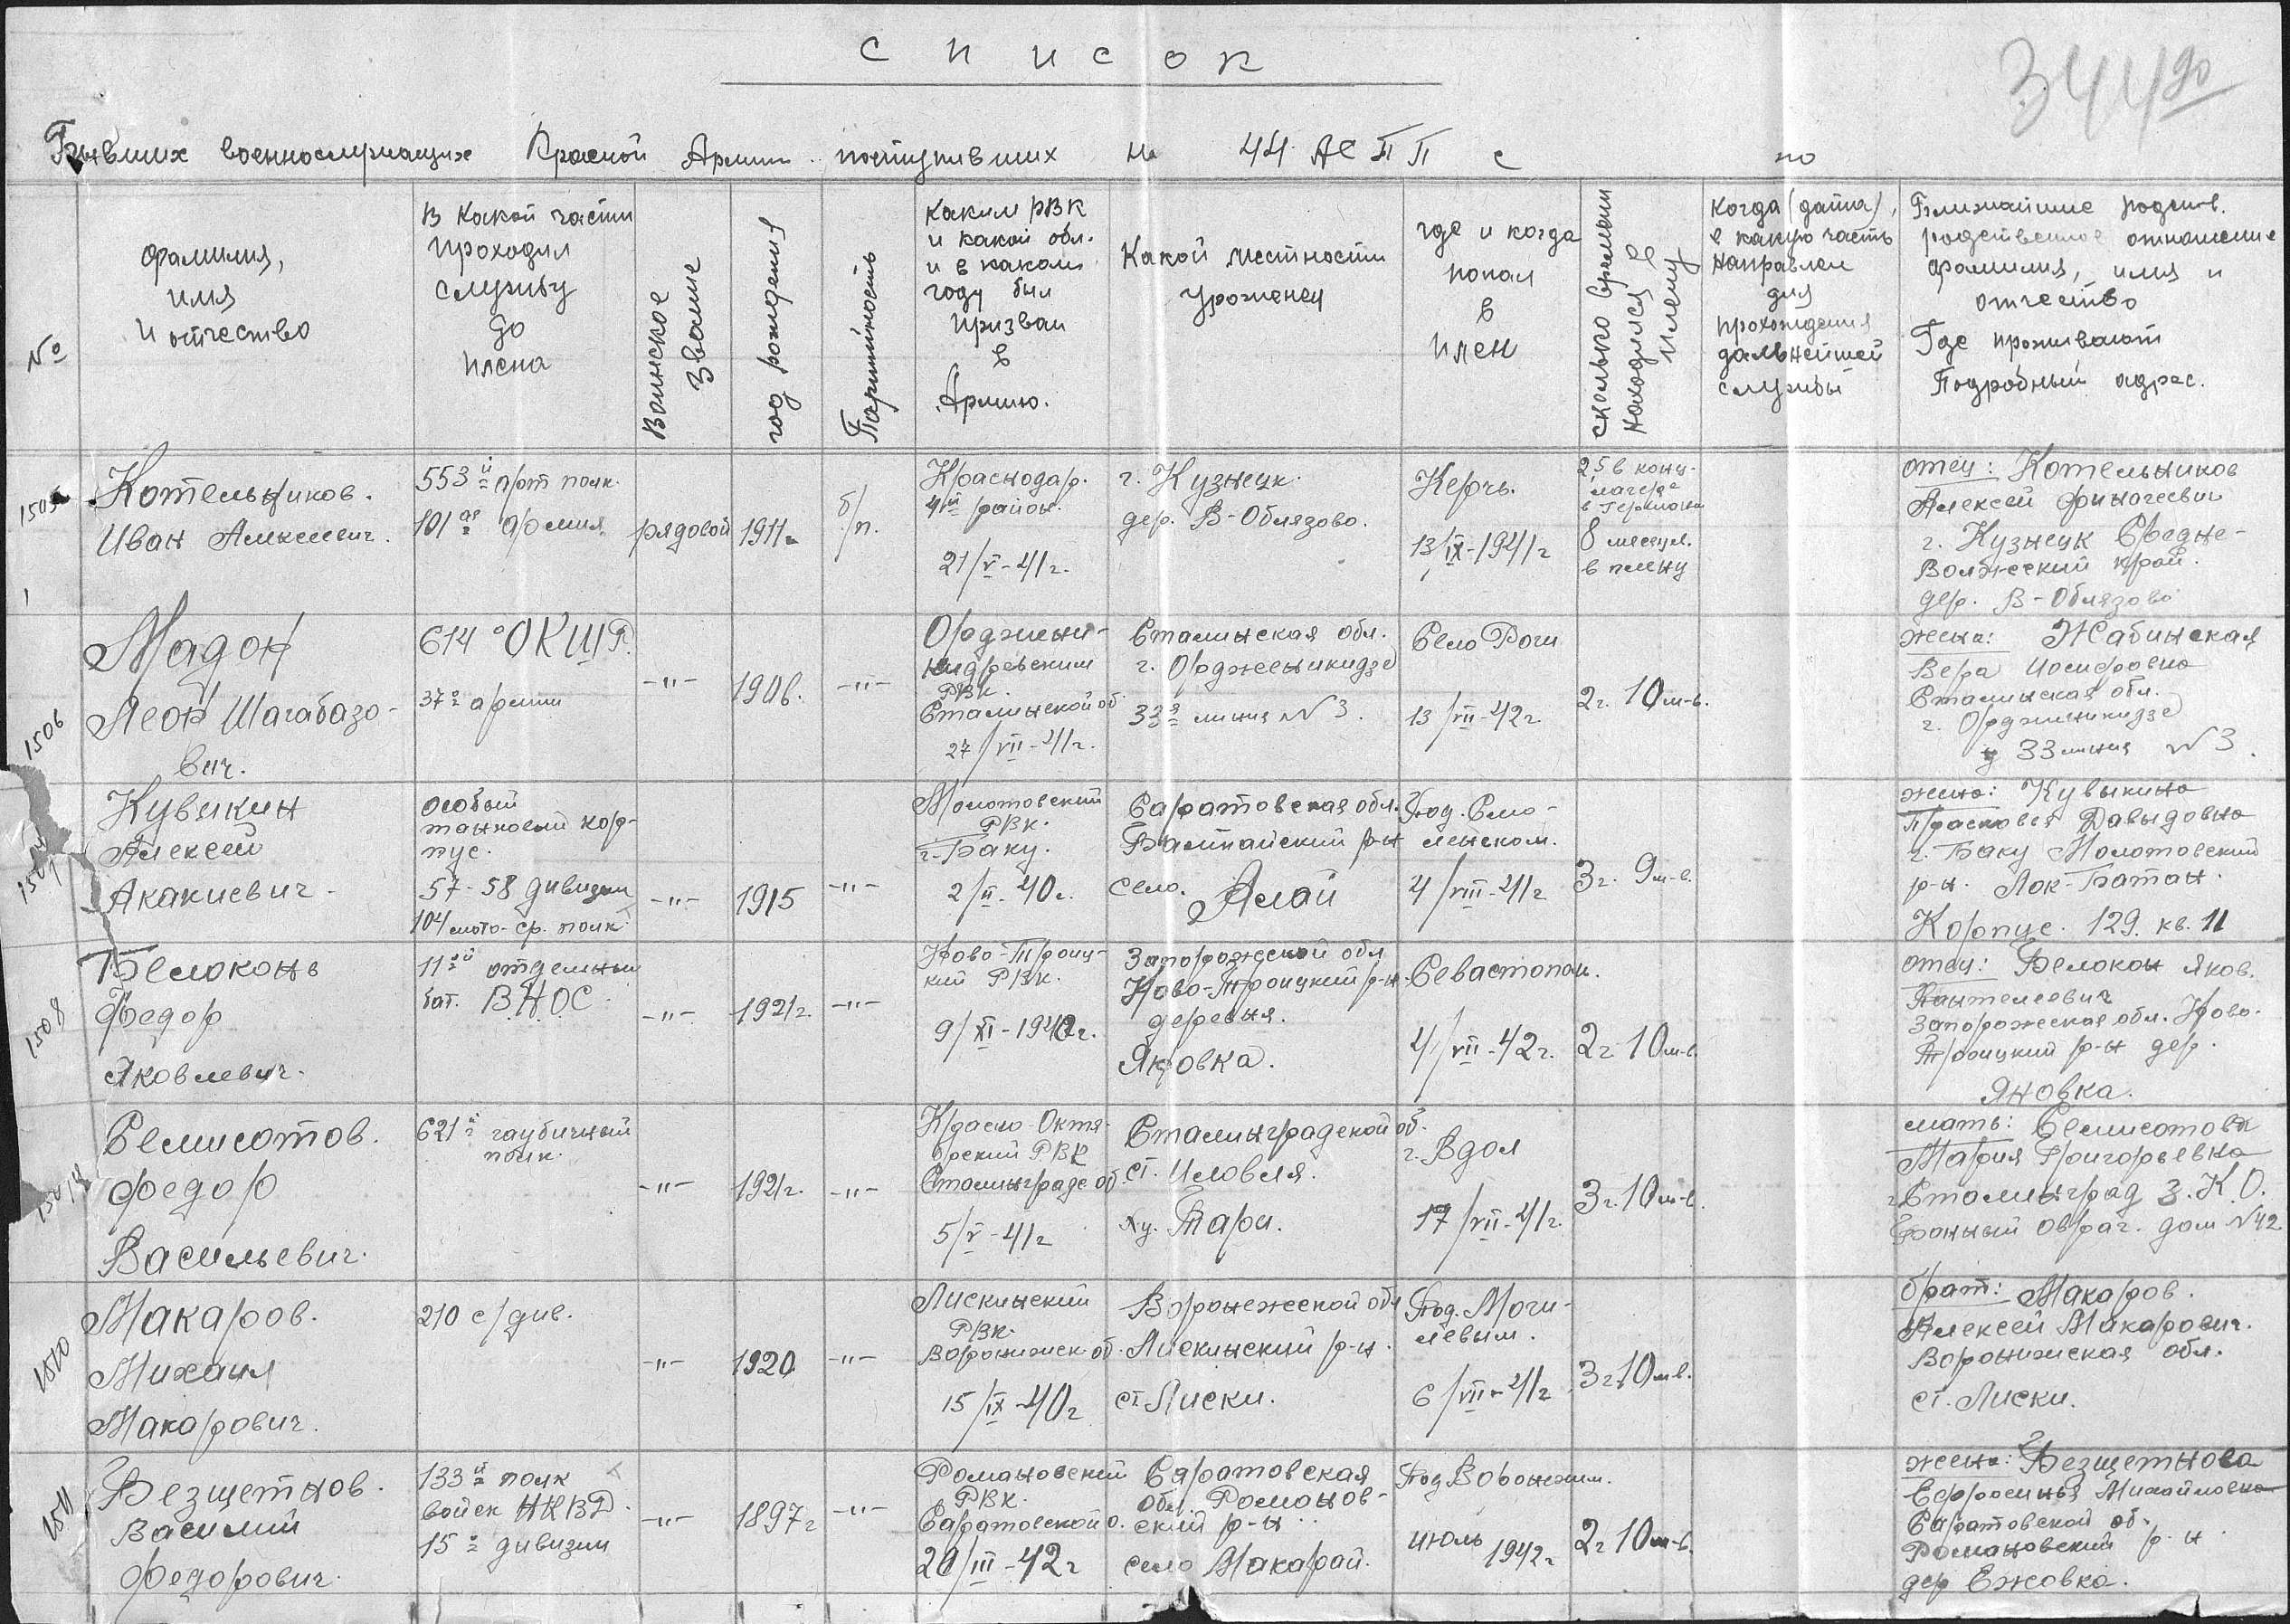 список
344 90
Бывших военнослужащих Красной Армии поступивших на 44 АСПП с по
№
фамилия,
имя
и отчество
В какой части
проходил
службу
до
плена
Воинское
звание
год рождения
Партийность
Каким РВК
и какой обл.
и в каком
году был
призван
в
Армию.
Какой местности
уроженец
где и когда
попал
в
плен
сколько времени
находился в
плену
Когда (дата),
в какую часть
направлен
для
прохождения
дальнейшей
службы
Ближайшие родств.
родственное отношение
фамилия, имя и
отчество
Где проживают
Подробный адрес.
1505
Котельников.
Иван Алексеевич.
553й арт полк.
101ая армия
рядовой
1911г
б/п.
Краснодар.
4й район.
21/V-41г.
г. Кузнецк.
дер. В-Облязово.
Керчь.
13/IX-1941г
25 в конц-
лагере
в Германии
8 месяц.
в плену
отец: Котельников
Алексей
г. Кузнецк Средне-
Волжский край.
дер. В-Облязово
1506
Мадон
Леон Шагабазо-
вич.
614 ОКШР.
37я армии
-"-
1906.
-"-
Орджени-
кидзевским
РВК.
Сталинской об.
27/VII-41г.
Сталинская обл.
г. Орджоникидзе
33я линия №3.
Село Роги
13/VII-42г.
2г. 10м-в.
жена: Жабинская
Вера Иосифовна
Сталинская обл.
г. Орджоникидзе
33 линия №3.
1507
Кувыкин
Алексей
Акакиевич.
особый
танковый кор-
пус.
57-58 дивизии
104/мото-ср. полк.
-"-
1915
-"-
Молотовский
РВК.
г. Баку.
2/II-40г.
Саратовская обл.
Балтайский р-н
село. Алай
Под. Смо-
ленском.
4/VIII-41г
3г. 9м-в.
жена: Кувыкина
Прасковея Давыдовна
г. Баку Молотовский
р-н. Лок-Батан.
Корпус. 129. кв. 11
1508
Белоконь
Федор
Яковлевич.
11ый отдельный
бат. ВНОС.
-"-
1921г.
-"-
Ново-Троиц-
кий РВК.
9/XI-1940г.
Запорожской обл
Ново-Троицкий р-н
деревня.
Яновка.
Севастопол.
4/VII-42г.
2г 10м-в.
отец: Белокон Яков.
Пантелеевич
Запорожская обл. Ново-
Троицкий р-н дер.
Яновка.
Селисотов.
Федор
Васильевич.
621й гаубичный
полк.
-"-
1921г.
-"-
Красно-Октя-
брский РВК
Сталинградс об.
5/V-41г
Сталинградской об.
ст. Иловля.
ху. Тари.
г. Вдол
17/VII-41г.
3г. 10м-в.
мать: Селисотова
Мария Григорьевна
г. Сталинград З.К.О.
овраг. дом №42
1510
Макаров.
Михаил
Макарович.
210 с/див.
-"-
1920
-"-
Лискинский
РВК.
Воронежск. об.
15/IX-40г
Воронежской обл
Лискинский р-н.
ст Лиски.
Под. Моги-
левым.
6/VII-41г
3г. 10м-в.
брат: Макаров.
Алексей Макарович.
Воронежская обл.
ст. Лиски.
1511
Безщетнов.
Василий
Федорович.
133й полк
войск НКВД.
15я дивизии
-"-
1897г
-"-
Романовский
РВК.
Саратовской о.
20/III-42г
Саратовская
обл. Романов-
ский р-н.
село Макарай.
Под Воронежем.
июль 1942г
2г 10м-в.
жена: Безщетнова
Ефросинья Михайловна
Саратовской об.
Романовский р-н
дер Ежовка.